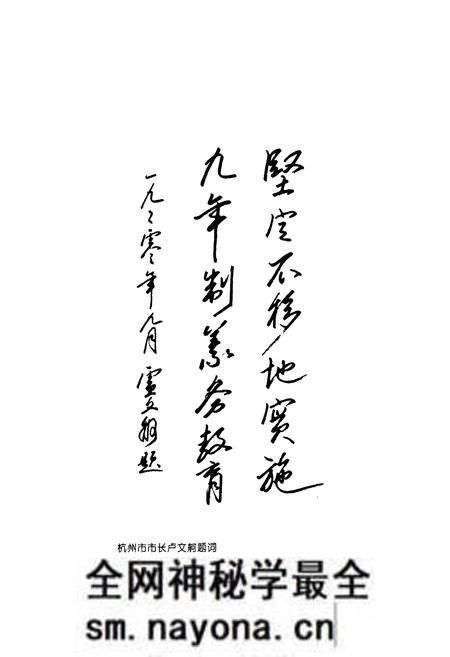 堅定不移地實施
九年制義务教育
一九九零年九月 盧文舸題
杭州市市长卢文舸题词
全网神秘学最全
sm.nayona.cn